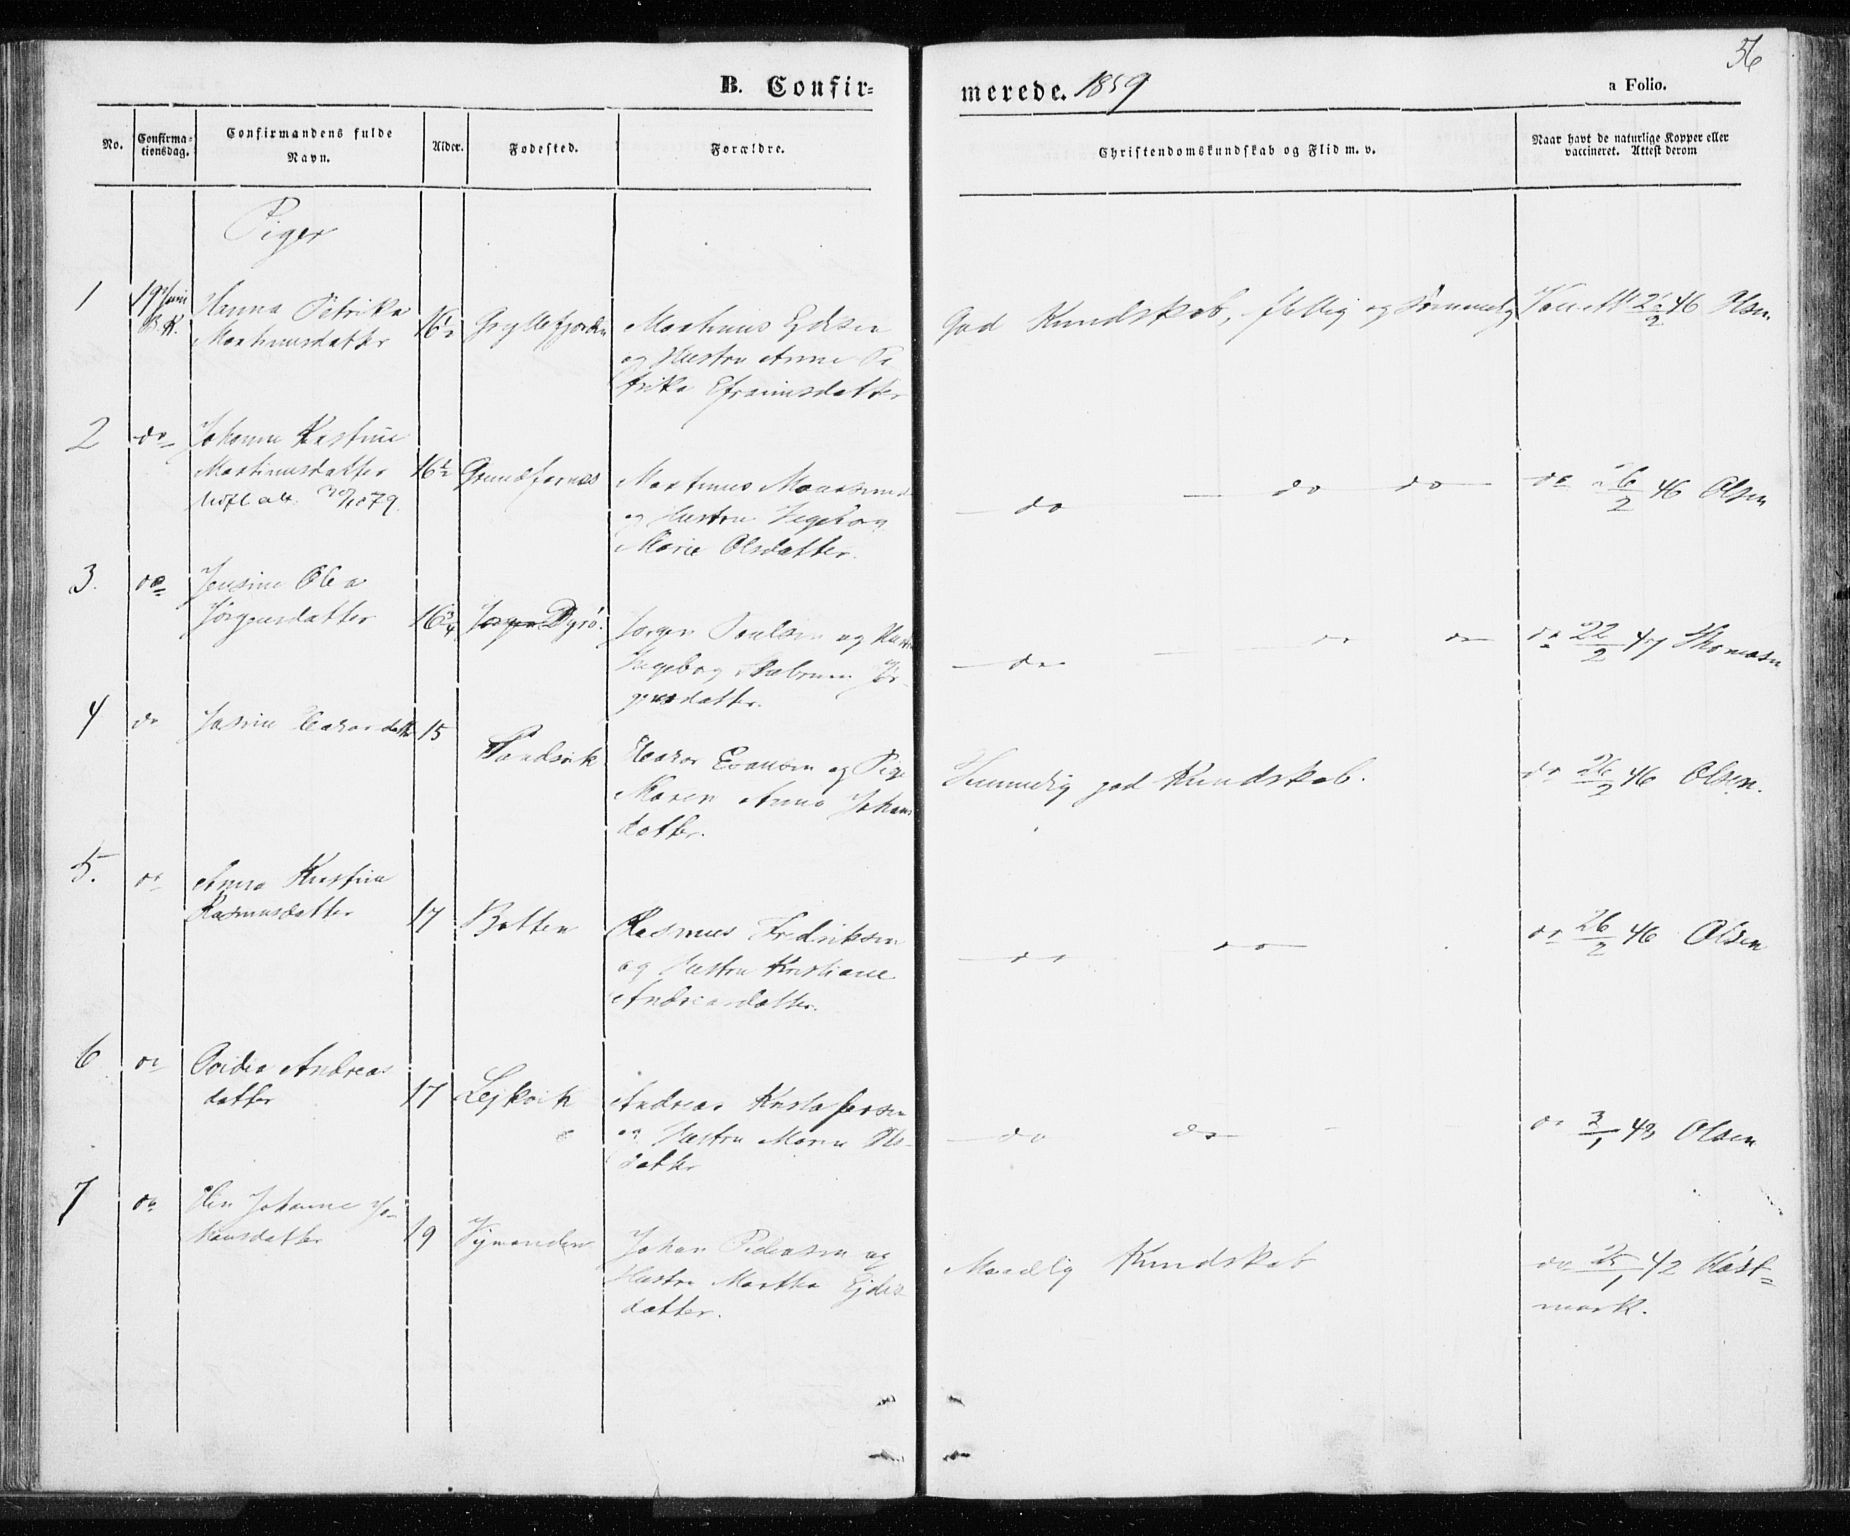 56
B. Confir=
merede. 1859
a Folio.
No.
Confirma=
tionsdag.
Confirmandens fulde
Navn.
Alder.
Fødested.
Forældre.
Christendomskundskab og Flid m. v.
Naar havt de naturlige Kopper eller
vaccineret. Attest derom
Piger
1
19 Juni
B.K.
Hanna Petrika
Martinusdatter
16½
Gryllefjorden
Martinus
og Hustru Anne Pe
trika Efraimsdatter
God Kundskab, flittig og sømmelig
26/2 46 Olsen
2
do
Johanna Kastine
Martinusdatter
16½
Grundfarnes
Martinus
og Hustru Ingeborg
Marie Olsdatter.
do do do
do 26/2 46 Olsen
3.
do
Jensine Olea
Jørgensdatter
16¾
Dyrø.
Jørgen Poulsen og Hustru
Ingeborg Jør-
gensdatter.
do do do
do 22/2 47 Thomasen
4
do
15
Sandvik
og Pige
Maren Anna Johans
datter.
Temmelig god Kundskab.
do 26/2 46 Olsen.
5.
do
Anna Kristina
Rasmusdatter
17
Botten
Rasmus Fredriksen
og Hustru Kristiane
Andreasdatter.
do do
do 26/2 46 Olsen
6
do
Ovidia Andreas
datter
17
Lejkvik
Andreas Kristofersen
og Hustru Maren Ols-
datter
do do
do 3/1 43 Olsen
7
do
Johanne Jo-
hansdatter
19
Johan Pedersen og
Hustru Martha Ejdes
datter.
Maadelig Kundskab
do 25/1 42 Hast=
mark.